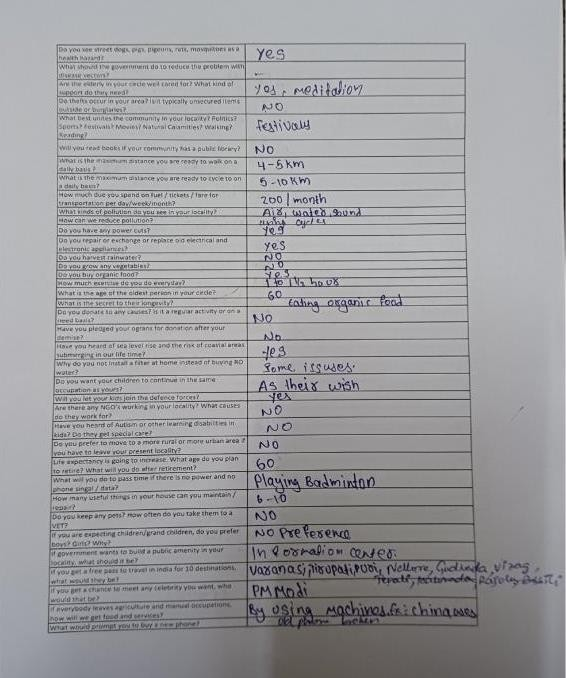 Do you see street dogs, pigs, pigeons, rats, mosquitoes as a
health hazard?
Yes
What should the government do to reduce the problem with
disease vectors?
Are the elderly in your circle well cared for? What kind of
support do they need?
Yes, meditation
Do thefts occur in your area? Is it typically unsecured items
outside or burglaries?
NO
What best unites the community in your locality? Politics?
Sports? Festivals? Movies? Natural Calamities? Walking?
Reading?
festivals
Will you read books if your community has a public library?
NO
What is the maximum distance you are ready to walk on a
daily basis?
4-5km
What is the maximum distance you are ready to cycle to on
a daily basis?
5-10 Km
How much due you spend on fuel / tickets / fare for
transportation per day/week/month?
200/month
What kinds of pollution do you see in your locality?
Air, water, sound
How can we reduce pollution?
using cycles
Do you have any power cuts?
Yes
Do you repair or exchange or replace old electrical and
electronic appliances?
yes
Do you harvest rainwater?
NO
Do you grow any vegetables?
NO
Do you buy organic food?
Yes
How much exercise do you do everyday?
1 to 1 1/2 hour
What is the age of the oldest person in your circle?
60
What is the secret to their longevity?
Eating organic food
Do you donate to any causes? Is it a regular activity or on a
need basis?
NO
Have you pledged your ograns for donation after your
demise?
No
Have you heard of sea level rise and the risk of coastal areas
submerging in our life time?
Yes
Why do you not install a filter at home instead of buying RO
water?
Some issuses.
Do you want your children to continue in the same
occupation as yours?
As their wish
Will you let your kids join the defence forces?
yes
Are there any NGO's working in your locality? What causes
do they work for?
NO
Have you heard of Autism or other learning disabilities in
kids? Do they get special care?
NO
Do you prefer to move to a more rural or more urban area if
you have to leave your present locality?
NO
Life expectancy is going to increase. What age do you plan
to retire? What will you do after retirement?
60
What will you do to pass time if there is no power and no
phone singal / data?
Playing Badminton
How many useful things in your house can you maintain /
repair?
6-10
Do you keep any pets? How often do you take them to a
VET?
NO
If you are expecting children/grand children, do you prefer
boys? Girls? Why?
NO Preference
If government wants to build a public amenity in your
locality, what should it be?
Information center.
If you get a free pass to travel in India for 10 destinations,
what would they be?
Varanasi, Tirupati, Puri, Nellore, Vizag,
Tenali,
If you get a chance to meet any celebrity you want, who
would that be?
PM Modi
If everybody leaves agriculture and manual occupations,
how will we get food and services?
By using Machines. Ex: china uses
What would prompt you to buy a new phone?
old phone broken